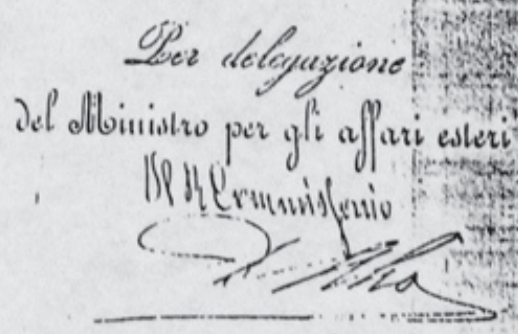 Per delegazione
del Ministro per gli affari esteri
Il R Commissario